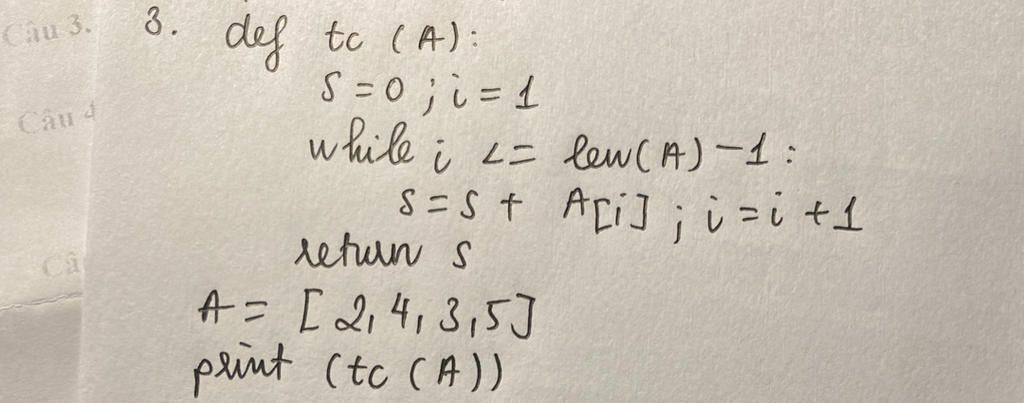 Câu 3.
3. def tc (A):
s = 0 ; i = 1
Câu 4
while i <= len(A) - 1 :
s = s + A[i] ; i = i + 1
return s
Câ
A = [2, 4, 3, 5]
print (tc (A))